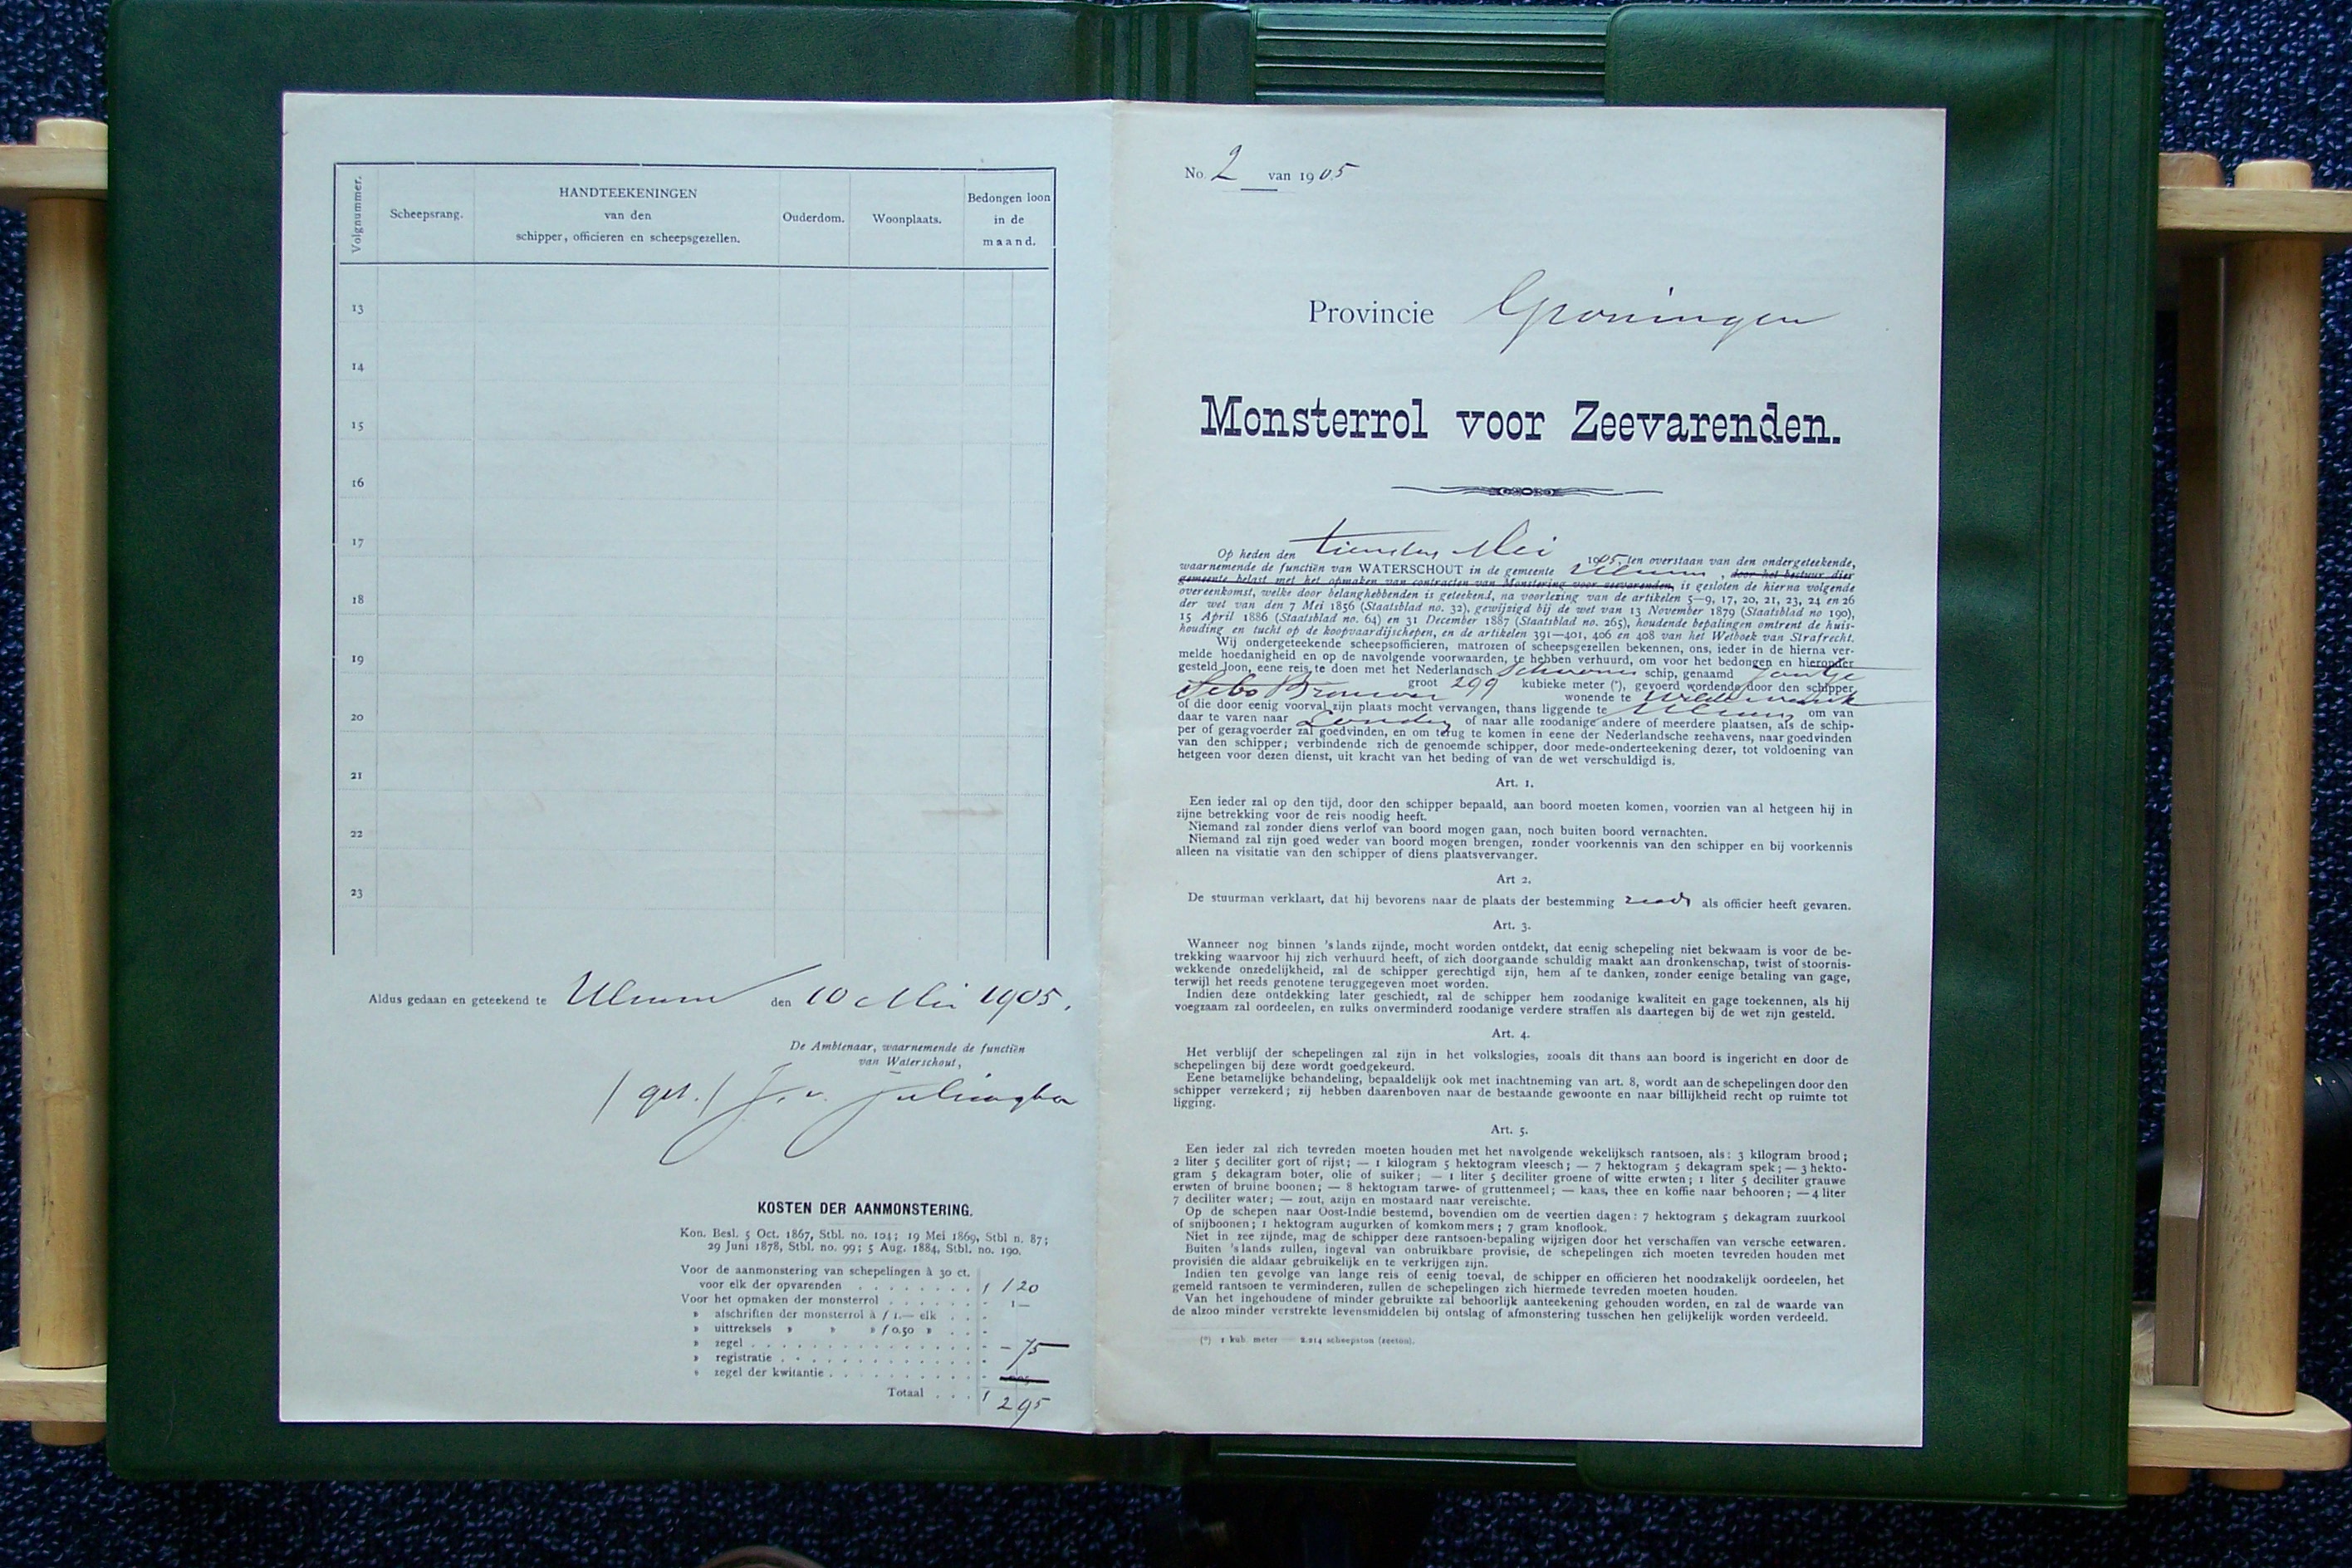 Volgnummer.
Scheepsrang.
HANDTEEKENINGEN
van den
schipper, officieren en scheepsgezellen.
Ouderdom.
Woonplaats.
Bedongen loon
in de
maand.
13
14
15
16
17
18
19
20
21
22
23
Aldus gedaan en geteekend te Ulrum den 10 Mei 1905.
De Ambtenaar, waarnemende de functiën
van Waterschout,
(get.) J. v.
KOSTEN DER AANMONSTERING.
Kon. Besl. 5 Oct. 1867, Stbl. no. 104; 19 Mei 1869, Stbl n. 87;
29 Juni 1878, Stbl. no. 99; 5 Aug. 1884, Stbl. no. 190.
Voor de aanmonstering van schepelingen à 30 ct.
voor elk der opvarenden . . . . . . . . f 1 20
Voor het opmaken der monsterrol . . . . . . - 1 —
» afschriften der monsterrol à f 1.— elk . . . -
» uittreksels » » » f 0.50 » . . -
» zegel . . . . . . . . . . . . . . . - - 75
» registratie . . . . . . . . . . . . . -
» zegel der kwitantie . . . . . . . . . . -
Totaal . . . f 2 95
No. 2 van 1905
Provincie Groningen
Monsterrol voor Zeevarenden.
Op heden den tienden Mei 1905, ten overstaan van den ondergeteekende,
waarnemende de functiën van WATERSCHOUT in de gemeente Ulrum, door het bestuur dier
gemeente belast met het opmaken van contracten van Monstering voor zeevarenden, is gesloten de hierna volgende
overeenkomst, welke door belanghebbenden is geteekend, na voorlezing van de artikelen 5—9, 17, 20, 21, 23, 24 en 26
der wet van den 7 Mei 1856 (Staatsblad no. 32), gewijzigd bij de wet van 13 November 1879 (Staatsblad no 190),
15 April 1886 (Staatsblad no. 64) en 31 December 1887 (Staatsblad no. 265), houdende bepalingen omtrent de huis-
houding en tucht op de koopvaardijschepen, en de artikelen 391—401, 406 en 408 van het Wetboek van Strafrecht.
Wij ondergeteekende scheepsofficieren, matrozen of scheepsgezellen bekennen, ons, ieder in de hierna ver-
melde hoedanigheid en op de navolgende voorwaarden, te hebben verhuurd, om voor het bedongen en hieronder
gesteld loon, eene reis te doen met het Nederlandsch Schoener schip, genaamd Jantje
groot 299 kubieke meter (*), gevoerd wordende door den schipper
Sebo Brouwer wonende te
of die door eenig voorval zijn plaats mocht vervangen, thans liggende te Ulrum om van
daar te varen naar Londen of naar alle zoodanige andere of meerdere plaatsen, als de schip-
per of gezagvoerder zal goedvinden, en om terug te komen in eene der Nederlandsche zeehavens, naar goedvinden
van den schipper; verbindende zich de genoemde schipper, door mede-onderteekening dezer, tot voldoening van
hetgeen voor dezen dienst, uit kracht van het beding of van de wet verschuldigd is.
Art. 1.
Een ieder zal op den tijd, door den schipper bepaald, aan boord moeten komen, voorzien van al hetgeen hij in
zijne betrekking voor de reis noodig heeft.
Niemand zal zonder diens verlof van boord mogen gaan, noch buiten boord vernachten.
Niemand zal zijn goed weder van boord mogen brengen, zonder voorkennis van den schipper en bij voorkennis
alleen na visitatie van den schipper of diens plaatsvervanger.
Art 2.
De stuurman verklaart, dat hij bevorens naar de plaats der bestemming reeds als officier heeft gevaren.
Art. 3.
Wanneer nog binnen 's lands zijnde, mocht worden ontdekt, dat eenig schepeling niet bekwaam is voor de be-
trekking waarvoor hij zich verhuurd heeft, of zich doorgaande schuldig maakt aan dronkenschap, twist of stoornis-
wekkende onzedelijkheid, zal de schipper gerechtigd zijn, hem af te danken, zonder eenige betaling van gage,
terwijl het reeds genotene teruggegeven moet worden.
Indien deze ontdekking later geschiedt, zal de schipper hem zoodanige kwaliteit en gage toekennen, als hij
voegzaam zal oordeelen, en zulks onverminderd zoodanige verdere straffen als daartegen bij de wet zijn gesteld.
Art. 4.
Het verblijf der schepelingen zal zijn in het volkslogies, zooals dit thans aan boord is ingericht en door de
schepelingen bij deze wordt goedgekeurd.
Eene betamelijke behandeling, bepaaldelijk ook met inachtneming van art. 8, wordt aan de schepelingen door den
schipper verzekerd; zij hebben daarenboven naar de bestaande gewoonte en naar billijkheid recht op ruimte tot
ligging.
Art. 5.
Een ieder zal zich tevreden moeten houden met het navolgende wekelijksch rantsoen, als: 3 kilogram brood;
2 liter 5 deciliter gort of rijst; — 1 kilogram 5 hektogram vleesch; — 7 hektogram 5 dekagram spek; — 3 hekto-
gram 5 dekagram boter, olie of suiker; — 1 liter 5 deciliter groene of witte erwten; 1 liter 5 deciliter grauwe
erwten of bruine boonen; — 8 hektogram tarwe- of gruttenmeel; — kaas, thee en koffie naar behooren; — 4 liter
7 deciliter water; — zout, azijn en mostaard naar vereischte.
Op de schepen naar Oost-Indië bestemd, bovendien om de veertien dagen: 7 hektogram 5 dekagram zuurkool
of snijboonen; 1 hektogram augurken of komkommers; 7 gram knoflook.
Niet in zee zijnde, mag de schipper deze rantsoen-bepaling wijzigen door het verschaffen van versche eetwaren.
Buiten 's lands zullen, ingeval van onbruikbare provisie, de schepelingen zich moeten tevreden houden met
provisiën die aldaar gebruikelijk en te verkrijgen zijn.
Indien ten gevolge van lange reis of eenig toeval, de schipper en officieren het noodzakelijk oordeelen, het
gemeld rantsoen te verminderen, zullen de schepelingen zich hiermede tevreden moeten houden.
Van het ingehoudene of minder gebruikte zal behoorlijk aanteekening gehouden worden, en zal de waarde van
de alzoo minder verstrekte levensmiddelen bij ontslag of afmonstering tusschen hen gelijkelijk worden verdeeld.
(*) 1 kub. meter = 2.214 scheepston (zeeton).